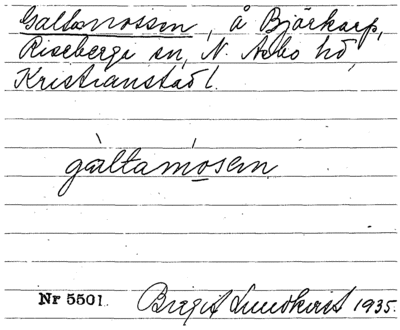 Galtamossen, å Björkarp,
Riseberga sn, N. Åsbo hd,
Kristianstad l.
gàltamósen
Nr 5501. Birgit Lundkvist 1935.